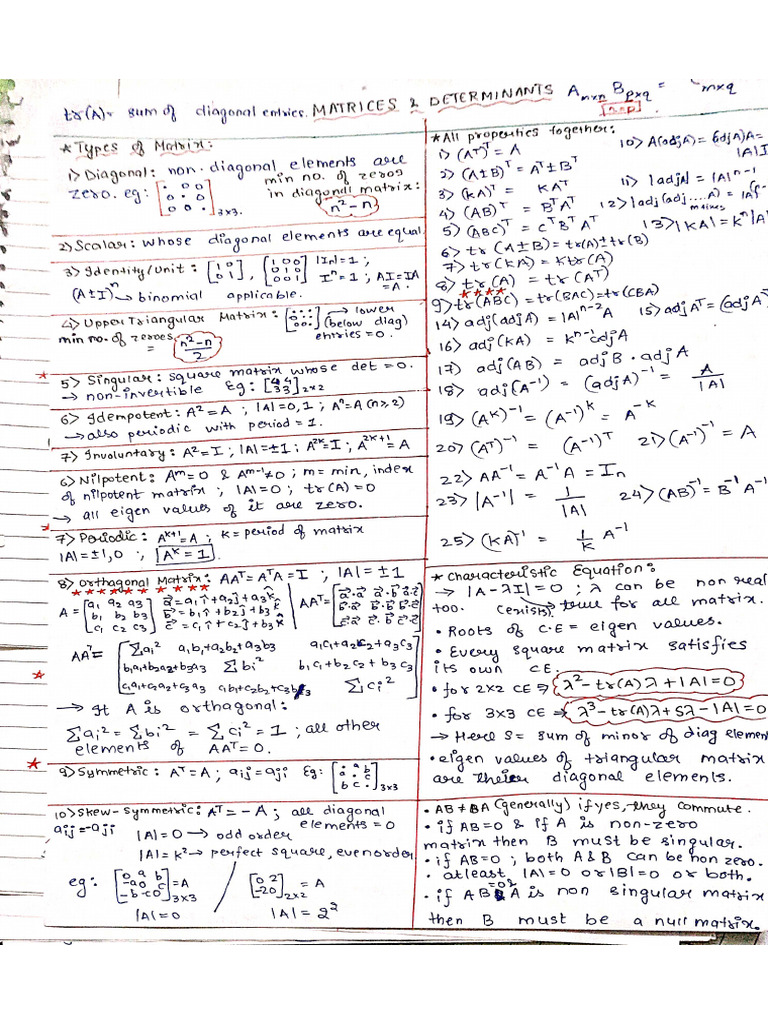 tr(A)= sum of diagonal entries. MATRICES & DETERMINANTS A_{m×n} B_{p×q} = C_{m×q}
[n=p]
★ Types of Matrix:
1) Diagonal: non-diagonal elements are
zero. eg: [. 0 0; 0 . 0; 0 0 .]_{3×3}. min no. of zeros
in diagonal matrix:
n²-n
2) Scalar: whose diagonal elements are equal
3) Identity/Unit: [1 0; 0 1], [1 0 0; 0 1 0; 0 0 1] |In|=1 ;
Iⁿ=1 ; AI=IA
=A.
(A±I)ⁿ → binomial applicable.
4) Upper Triangular Matrix: [. . .; 0 . .; 0 0 .] → lower
(below diag)
entries=0.
min no. of zeroes = (n²-n)/2
★ 5) Singular: square matrix whose det = 0.
→ non-invertible Eg: [4 4; 3 3]_{2×2}
6) Idempotent: A²=A ; |A|=0,1 ; Aⁿ=A (n≥2)
→ also periodic with period = 1.
7) Involuntary: A²=I ; |A|=±1 ; A^{2K}=I ; A^{2K+1}=A
6) Nilpotent: A^m=0 & A^{m-1}≠0 ; m=min, index
of nilpotent matrix ; |A|=0 ; tr(A)=0
→ all eigen values of it are zero.
★ 7) Periodic: A^{K+1}=A ; K=period of matrix
|A|=±1,0 ; [A^K=1.]
8) Orthogonal Matrix: AAᵀ=AᵀA=I ; |A|=±1
★★★★★★★★★★
A = [a₁ a₂ a₃; b₁ b₂ b₃; c₁ c₂ c₃] a⃗=a₁î+a₂ĵ+a₃k̂ b⃗=b₁î+b₂ĵ+b₃k̂ c⃗=c₁î+c₂ĵ+c₃k̂ | AAᵀ=[a⃗·a⃗ a⃗·b⃗ a⃗·c⃗; b⃗·a⃗ b⃗·b⃗ b⃗·c⃗; c⃗·a⃗ c⃗·b⃗ c⃗·c⃗]
AAᵀ= [Σai² a₁b₁+a₂b₂+a₃b₃ a₁c₁+a₂c₂+a₃c₃
b₁a₁+b₂a₂+b₃a₃ Σbi² b₁c₁+b₂c₂+b₃c₃
★ c₁a₁+c₂a₂+c₃a₃ c₁b₁+c₂b₂+c₃b₃ Σci²]
→ It A is orthagonal:
Σai² = Σbi² = Σci² = 1 ; all other
elements of AAᵀ=0.
★ 9) Symmetric: Aᵀ=A ; aij=aji Eg: [. a b; a . c; b c .]_{3×3}
10) Skew-Symmetric: Aᵀ=-A ; all diagonal
elements=0
aij=-aji
|A|=0 → odd order
|A|=K² → perfect square, even order
eg: [0 a b; -a 0 c; -b -c 0]_{3×3} =A / [0 2; -2 0]_{2×2} = A
|A|=0 |A|=2²
★ All properties together:
1) (Aᵀ)ᵀ = A
2) (A±B)ᵀ = Aᵀ±Bᵀ
3) (KA)ᵀ = KAᵀ
4) (AB)ᵀ = BᵀAᵀ
5) (ABC)ᵀ = CᵀBᵀAᵀ
6) tr (A±B) = tr(A)±tr(B)
7) tr(KA) = Ktr(A)
8) tr(A) = tr(Aᵀ)
★★★★
9) tr(ABC)=tr(BAC)=tr(CBA)
10) A(adjA) = (adjA)A=
|A|I
11) |adjA| = |A|^{n-1}
12) |adj(adj....A)=
13) |KA|=Kⁿ|A|
14) adj(adjA) = |A|^{n-2}A
15) adjAᵀ=(adjA)ᵀ
16) adj(KA) = K^{n-1}adjA
17) adj(AB) = adjB·adjA
18) adj(A⁻¹) = (adjA)⁻¹ = A/|A|
19) (A^K)⁻¹ = (A⁻¹)^K = A^{-K}
20) (Aᵀ)⁻¹ = (A⁻¹)ᵀ 21) (A⁻¹)⁻¹ = A
22) AA⁻¹ = A⁻¹A = In
23) |A⁻¹| = 1/|A| 24) (AB)⁻¹ = B⁻¹A⁻¹
25) (KA)⁻¹ = 1/K A⁻¹
★ Characteristic Equation:
→ |A-λI|=0 ; λ can be non real
too. (exists) → true for all matrix.
• Roots of C.E = eigen values.
• Every square matrix satisfies
its own C.E.
• for 2x2 CE ⇒ λ²-tr(A)λ+|A|=0
• for 3x3 CE ⇒ λ³-tr(A)λ+Sλ-|A|=0
→ Here S= sum of minor of diag elemen
• eigen values of triangular matrix
are their diagonal elements.
• AB≠BA (generally) if yes, they commute.
• if AB=0 & if A is non-zero
matrix then B must be singular.
• if AB=0 ; both A&B can be non zero.
• atleast |A|=0 or |B|=0 or both.
• if AB=0& A is non singular matrix
then B must be a null matrix.